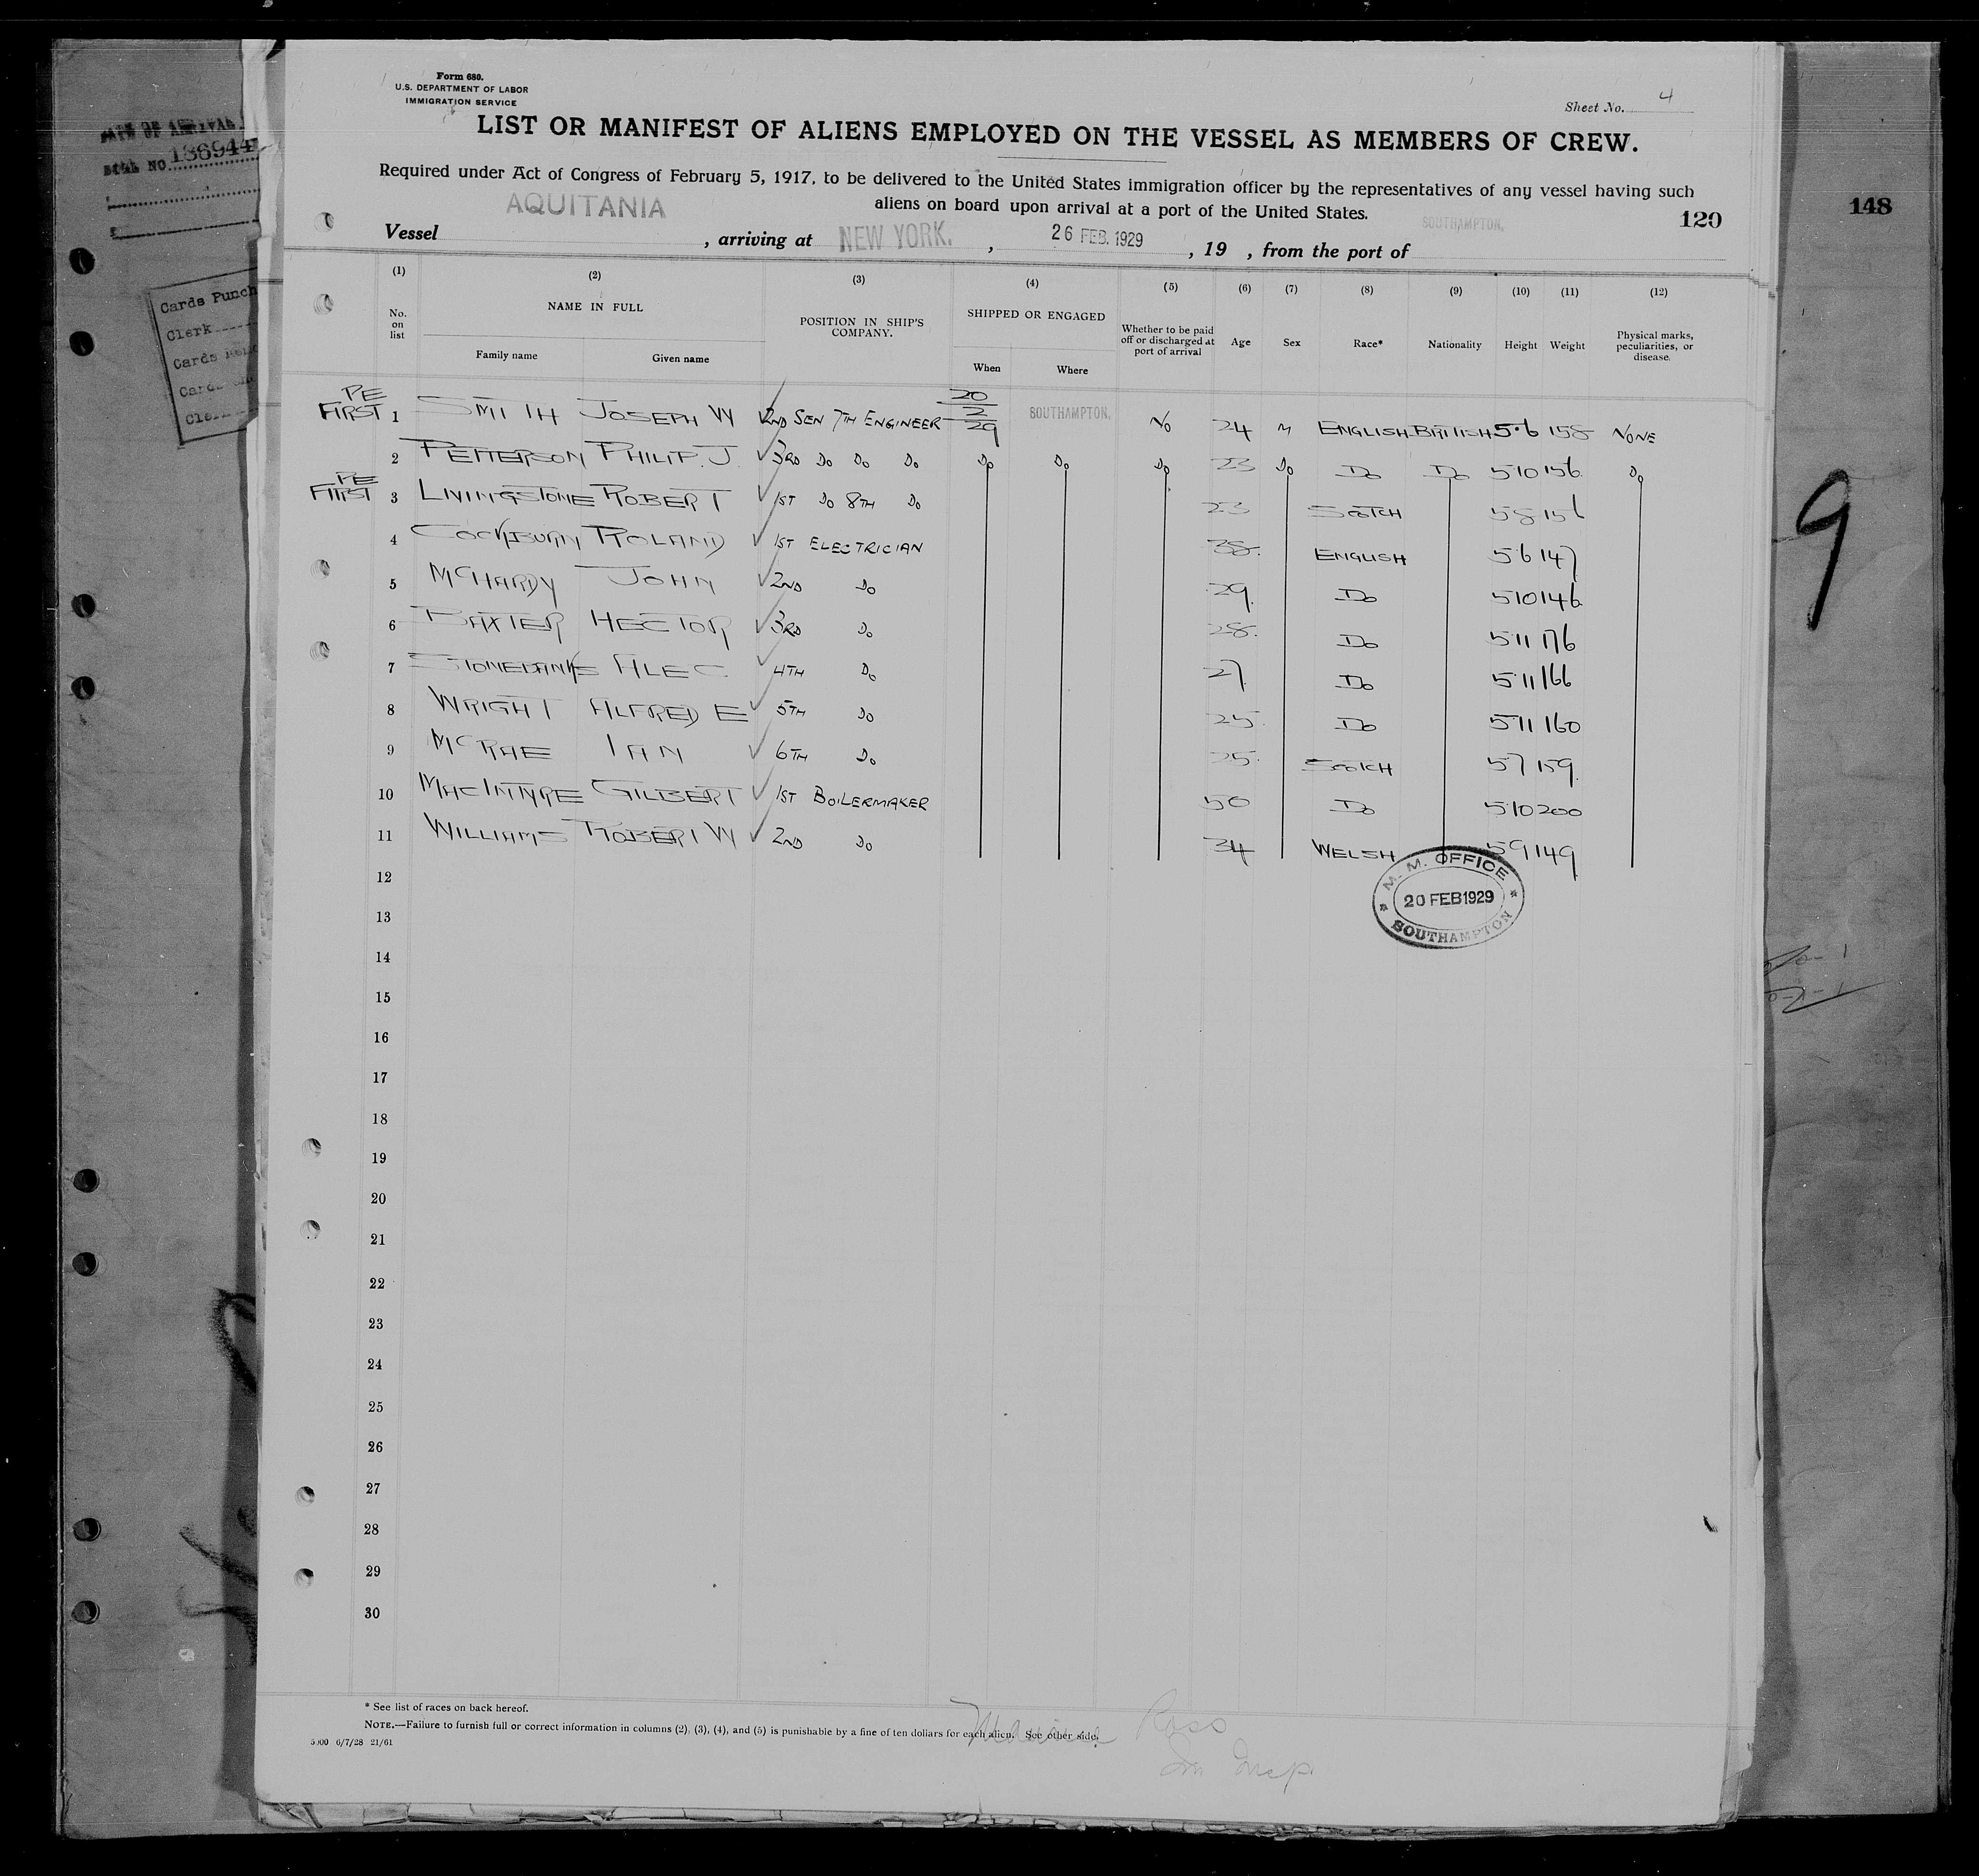 Form 680.
U.S. DEPARTMENT OF LABOR
IMMIGRATION SERVICE
Sheet No. 4
LIST OR MANIFEST OF ALIENS EMPLOYED ON THE VESSEL AS MEMBERS OF CREW.
Required under Act of Congress of February 5, 1917, to be delivered to the United States immigration officer by the representatives of any vessel having such
aliens on board upon arrival at a port of the United States.
120
148
Vessel AQUITANIA, arriving at NEW YORK., 26 FEB. 1929, 19 , from the port of SOUTHAMPTON.
(1) (2) (3) (4) (5) (6) (7) (8) (9) (10) (11) (12)
No. on list NAME IN FULL Family name Given name POSITION IN SHIP'S COMPANY. SHIPPED OR ENGAGED When Where Whether to be paid off or discharged at port of arrival Age Sex Race* Nationality Height Weight Physical marks, peculiarities, or disease.
PE FIRST 1 SMITH JOSEPH W 2ND SEN 7TH ENGINEER 20/2/29 SOUTHAMPTON. NO 24 M ENGLISH BRITISH 5·6 158 NONE
2 PETTERSON PHILIP. J. 3RD DO DO DO DO DO DO 23 DO DO DO 5·10 156 DO
PE FIRST 3 LIVINGSTONE ROBERT 1ST DO 8TH DO 23 SCOTCH 5·8 156
4 COCKBURN ROLAND 1ST ELECTRICIAN 38. ENGLISH 5·6 147
5 McHARDY JOHN 2ND DO 29. DO 5·10 146
6 BAXTER HECTOR 3RD DO 28. DO 5·11 176
7 STONEBANKS ALEC 4TH DO 27. DO 5·11 166
8 WRIGHT ALFRED E 5TH DO 25. DO 5·11 160
9 McRAE IAN 6TH DO 25. SCOTCH 5·7 159.
10 MACINTYRE GILBERT 1ST BOILERMAKER 50 DO 5·10 200
11 WILLIAMS ROBERT W 2ND DO 34 WELSH 5·9 149
M. M. OFFICE
20 FEB 1929
SOUTHAMPTON
12
13
14
15
16
17
18
19
20
21
22
23
24
25
26
27
28
29
30
9
BOOK NO 136944
Cards Punch
Clerk
Cards
Cle
* See list of races on back hereof.
NOTE.—Failure to furnish full or correct information in columns (2), (3), (4), and (5) is punishable by a fine of ten dollars for each alien. See other side.
6/7/28 21/61
Ross
Im Insp.